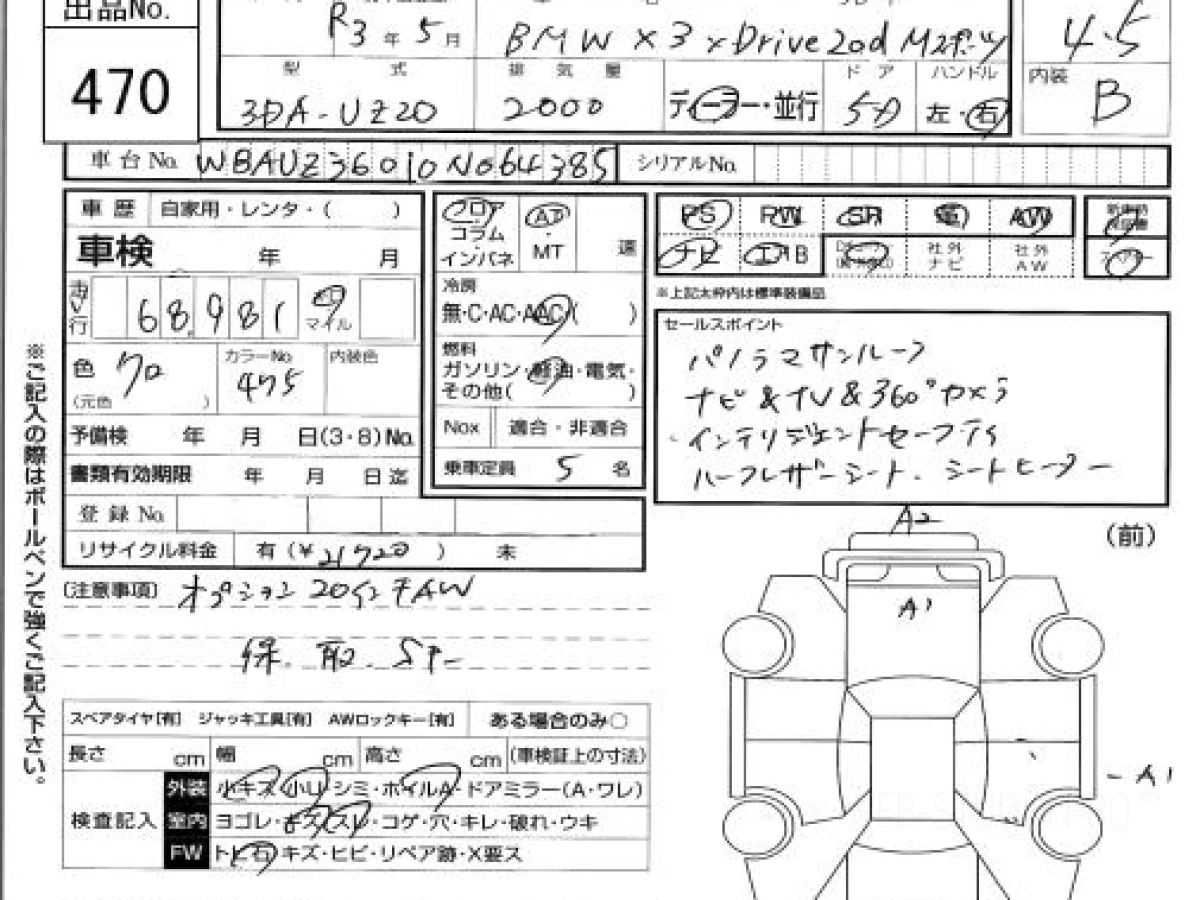 出品No.
470
R3年5月
BMW X3 xDrive20d Mスポーツ
4.5
型式
排気量
ドア
ハンドル
内装
3DA-UZ20
2000
ディーラー・並行
5D
左・右
B
車台No. WBAUZ36010N064385
シリアルNo.
車歴 自家用・レンタ・( )
車検 年 月
走行 68,981 キロ マイル
色 クロ
(元色 )
カラーNo. 475
内装色
予備検 年 月 日(3・8)No.
書類有効期限 年 月 日迄
登録No.
リサイクル料金 有(¥21720) 未
フロア
コラム
インパネ
AT
MT
速
冷房
無・C・AC・AAC( )
燃料
ガソリン・軽油・電気・
その他( )
Nox 適合・非適合
乗車定員 5名
PS PW SR 革 AW
ナビ エアB 社外ナビ 社外AW
※上記太枠内は標準装備品
セールスポイント
パノラマサンルーフ
ナビ&TV&360°カメラ
インテリジェントセーフティ
ハーフレザーシート. シートヒーター
〔注意事項〕 オプション20インチAW
保. 取. SP-
スペアタイヤ[有] ジャッキ工具[有] AWロックキー[有] ある場合のみ○
長さ cm 幅 cm 高さ cm (車検証上の寸法)
検査記入
外装 小キズ・小U・シミ・ホイルA・ドアミラー(A・ワレ)
室内 ヨゴレ・キズ・スレ・コゲ・穴・キレ・破れ・ウキ
FW トビ石・キズ・ヒビ・リペア跡・X要ス
※ご記入の際はボールペンで強くご記入下さい。
(前)
A2
A1
A1